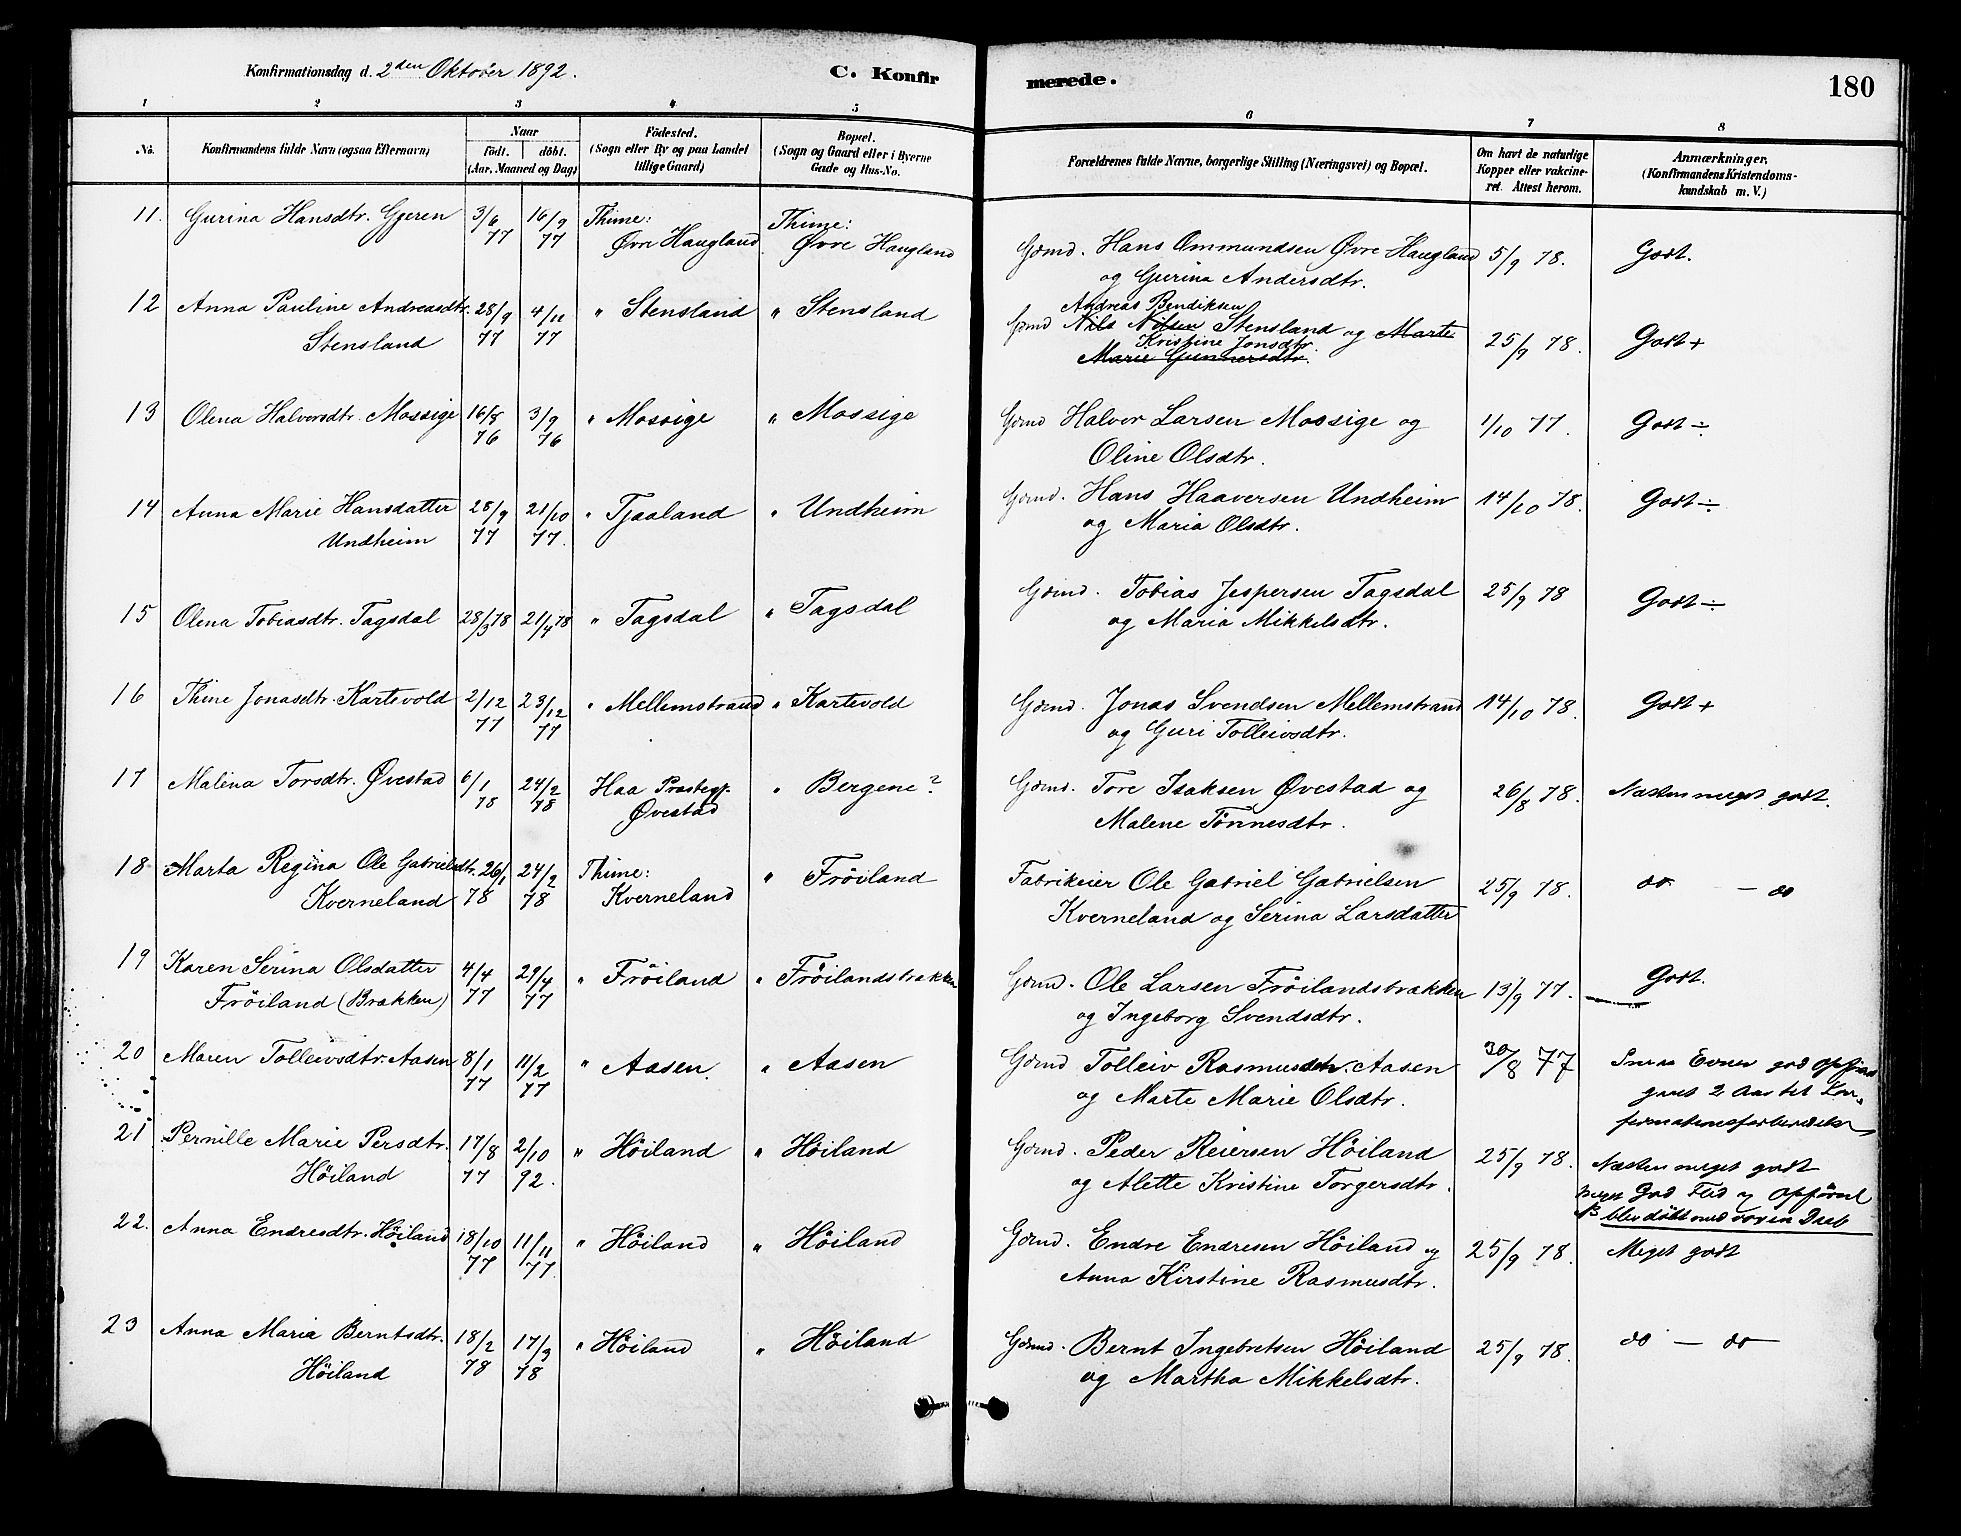 Konfirmationsdag d. 2den Oktober 1892.
C. Konfir
merede.
180
1 2 3 4 5 6 7 8
No.
Konfirmandens fulde Navn (ogsaa Efternavn)
Naar
födt. döbt.
(Aar, Maaned og Dag)
Födested.
(Sogn eller By og paa Landet
tillige Gaard)
Bopæl.
(Sogn og Gaard eller i Byerne
Gade og Hus-No.
Forældrenes fulde Navne, borgerlige Stilling (Næringsvei) og Bopæl.
Om havt de naturlige
Kopper eller vakcine-
ret. Attest herom.
Anmærkninger.
(Konfirmandens Kristendoms-
kundskab m. V.)
11. Gurina Hansdtr. Gjeren 3/6 77 16/9 77 Thime: Øvre Haugland Thime: Øvre Haugland Gdmd. Hans Ommundsen Øvre Haugland 5/9 78. Godt.
og Gurina Andersdtr.
Andreas Bendiksen
12 Anna Pauline Andreasdtr. 28/9 77 4/11 77 " Stensland " Stensland Gdmd Nils Nilsen Stensland og Marte 25/9 78. Godt +
Stensland
Kristine Jonsdtr.
Marie Gunnersdtr.
13 Olena Halvorsdtr. Mossige 16/8 76 3/9 76 " Mossige " Mossige Gdmd Halvor Larsen Mossige og 1/10 77. Godt ÷
Oline Olsdtr.
14 Anna Marie Hansdatter 28/9 77 21/10 77. " Tjaaland " Undheim Gdmd. Hans Haaversen Undheim 14/10 78. Godt ÷
Undheim og Maria Olsdtr.
15 Olena Tobiasdtr. Tagsdal 28/3 78 21/4 78 " Tagsdal " Tagsdal Gdmd. Tobias Jespersen Tagsdal 25/9 78 Godt ÷
og Maria Mikkelsdtr.
16 Thine Jonasdtr. Kartevold 2/12 77 23/12 77 " Mellemstrand " Kartevold Gdmd. Jonas Svendsen Mellemstrand 14/10 78. Godt +
og Guri Tolleivsdtr.
17 Malena Torsdtr. Øvestad 6/1 78 24/2 78 Haa Prestegj. Øvestad " Bergene? Gdmd. Tore Isaksen Øvestad og 26/8 78. Næsten meget godt.
Malene Tönnesdtr.
18 Marta Regina Ole Gabrielsdtr. 26/1 78 24/2 78 Thime: Kverneland " Fröiland Fabrikeier Ole Gabriel Gabrielsen 25/9 78. do - do
Kverneland Kverneland og Serina Larsdatter
19 Karen Serina Olsdatter 4/4 77 29/4 77 " Fröiland " Fröilandsbrækken Gdmd. Ole Larsen Fröilandsbrækken 13/9 77. Godt.
Fröiland (Brækken) og Ingeborg Svendsdtr.
20 Maren Tolleivsdtr. Aasen 8/1 77 11/2 77 " Aasen. " Aasen Gdmd Tolleiv Rasmussen Aasen 30/8 77 Smaa Evner god Opförsel
og Marte Marie Olsdtr. gaaet 2 Aar til Kon-
firmationsforberedelse
21 Pernille Marie Persdtr. 17/8 77 2/10 92. " Höiland " Höiland Gdmd. Peder Reiersen Höiland 25/9 78. Næsten meget godt
Höiland og Alette Kristine Torgersdtr. meget God Flid og Opförsel
blev döbt med voxen Daab
22. Anna Endresdtr. Höiland 18/10 77 11/11 77. " Höiland " Höiland Gdmd. Endre Endresen Höiland og 25/9 78. Meget godt
Anna Kirstine Rasmusdtr.
23 Anna Maria Berntsdtr. 18/2 78 17/3 78 " Höiland " Höiland Gdmd. Bernt Ingebretsen Höiland 25/9 78. do - do
Höiland og Martha Mikkelsdtr.